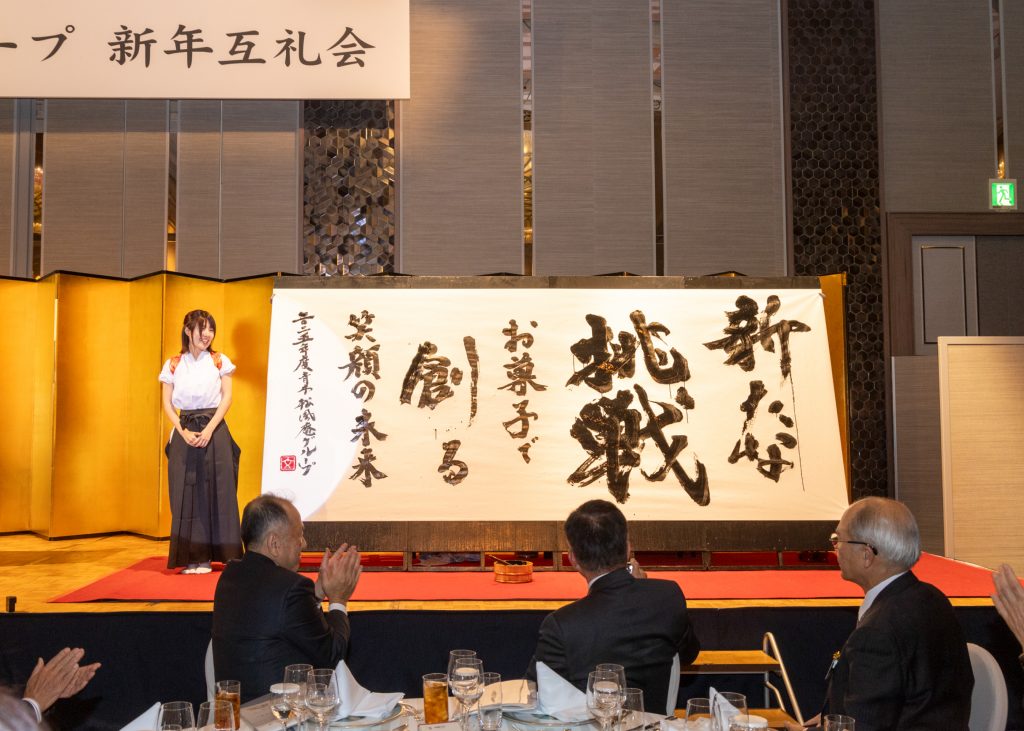 ープ 新年互礼会
新な
挑戦
お菓子で
創る
笑顔の未来
二〇二五年度 青木松風庵グループ
文